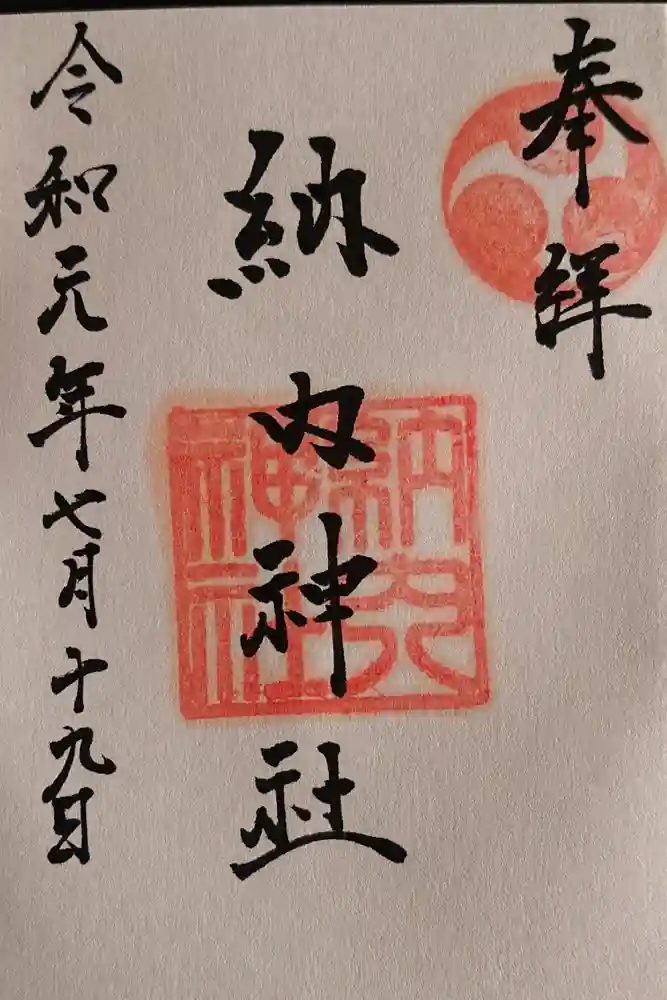 奉拝
納内神社
納内
神社
令和元年七月十九日